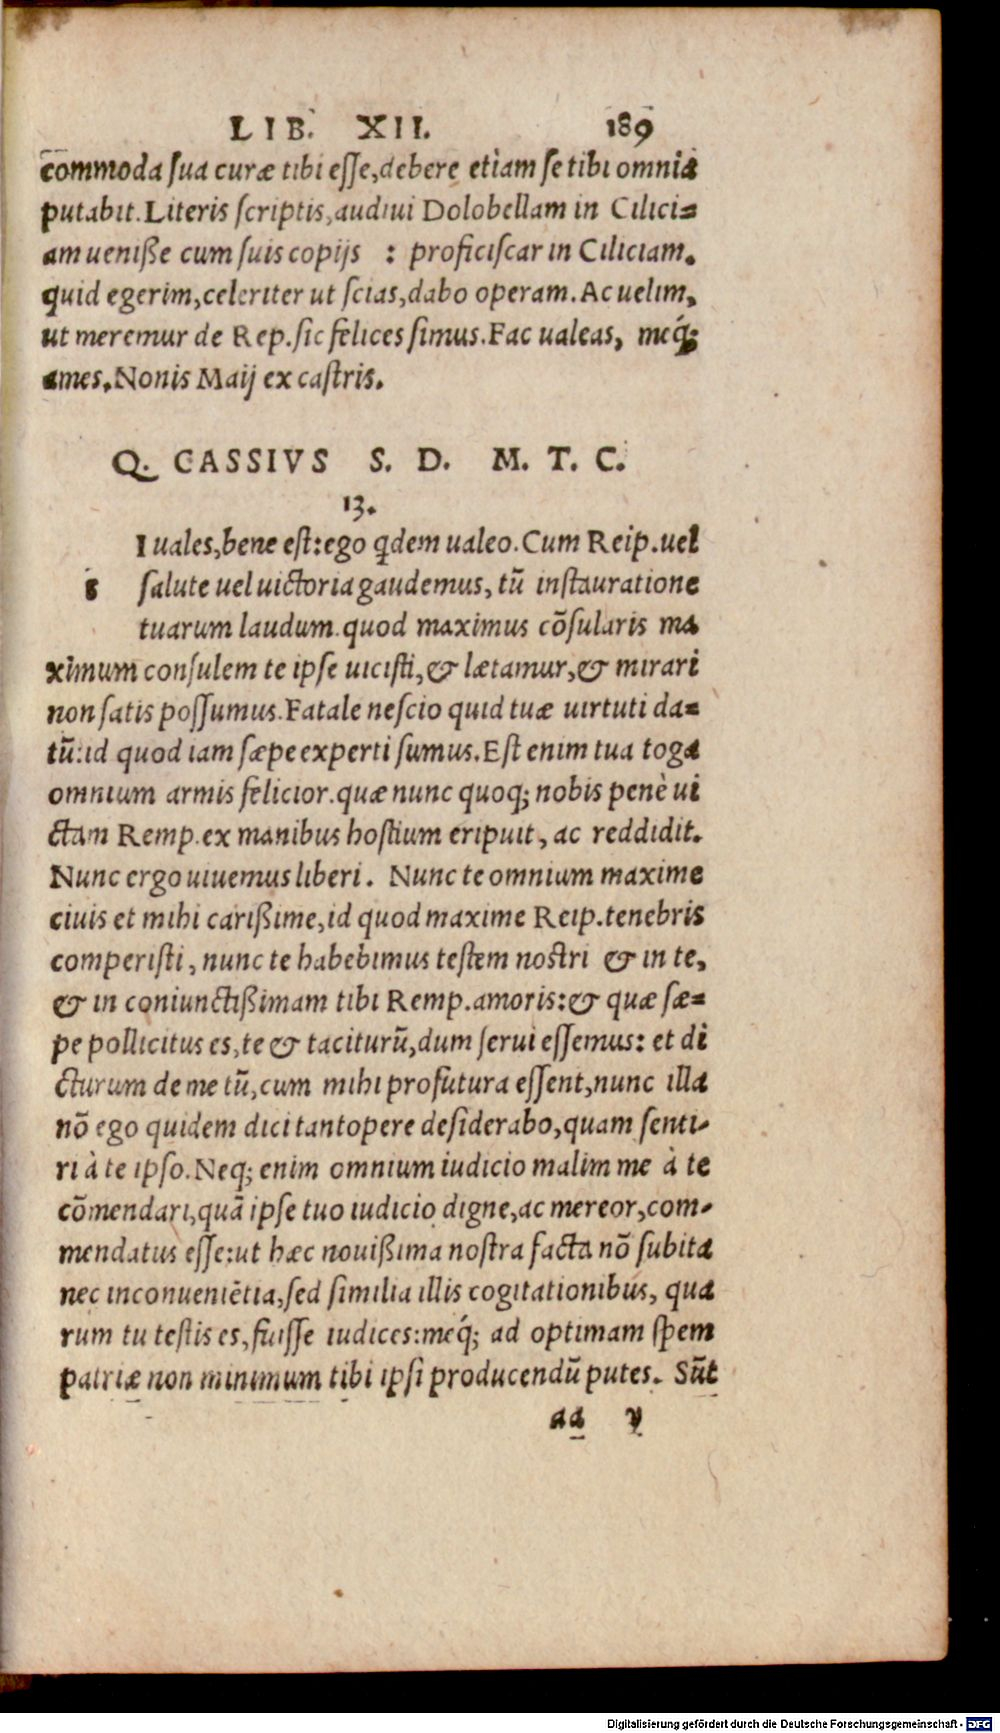 LIB. XII. 189
commoda sua curæ tibi esse, debere etiam se tibi omnia
putabit. Literis scriptis, audiui Dolobellam in Cilici=
am uenisse cum suis copijs : proficiscar in Ciliciam.
quid egerim, celeriter ut scias, dabo operam. Ac uelim,
ut meremur de Rep. sic felices simus. Fac ualeas, meq́;
ames. Nonis Maij ex castris.
Q. CASSIVS S. D. M. T. C.
13.
I uales, bene est: ego qdem ualeo. Cum Reip. uel
s salute uel uictoria gaudemus, tũ instauratione
tuarum laudum. quod maximus cõsularis ma
ximum consulem te ipse uicisti, & lætamur, & mirari
non satis possumus. Fatale nescio quid tuæ uirtuti da=
tũ: id quod iam sæpe experti sumus. Est enim tua toga
omnium armis felicior. quæ nunc quoq; nobis penè ui
ctam Remp. ex manibus hostium eripuit, ac reddidit.
Nunc ergo uiuemus liberi. Nunc te omnium maxime
ciuis et mihi carißime, id quod maxime Reip. tenebris
comperisti, nunc te habebimus testem nostri & in te,
& in coniunctißimam tibi Remp. amoris: & quæ sæ=
pe pollicitus es, te & taciturũ, dum serui essemus: et di
cturum de me tũ, cum mihi profutura essent, nunc illa
nõ ego quidem dici tantopere desiderabo, quam senti-
ri à te ipso. Neq; enim omnium iudicio malim me à te
cõmendari, quã ipse tuo iudicio digne, ac mereor, com-
mendatus esse: ut hæc nouißima nostra facta nõ subita
nec inconueniẽtia, sed similia illis cogitationibus, qua
rum tu testis es, fuisse iudices: meq́; ad optimam spem
patriæ non minimum tibi ipsi producendũ putes. Sũt
aa v
Digitalisierung gefördert durch die Deutsche Forschungsgemeinschaft - DFG